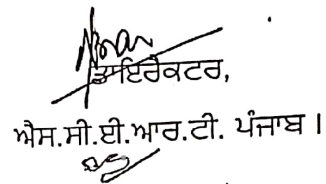 ਡਾਇਰੈਕਟਰ,
ਐਸ.ਸੀ.ਈ.ਆਰ.ਟੀ. ਪੰਜਾਬ।